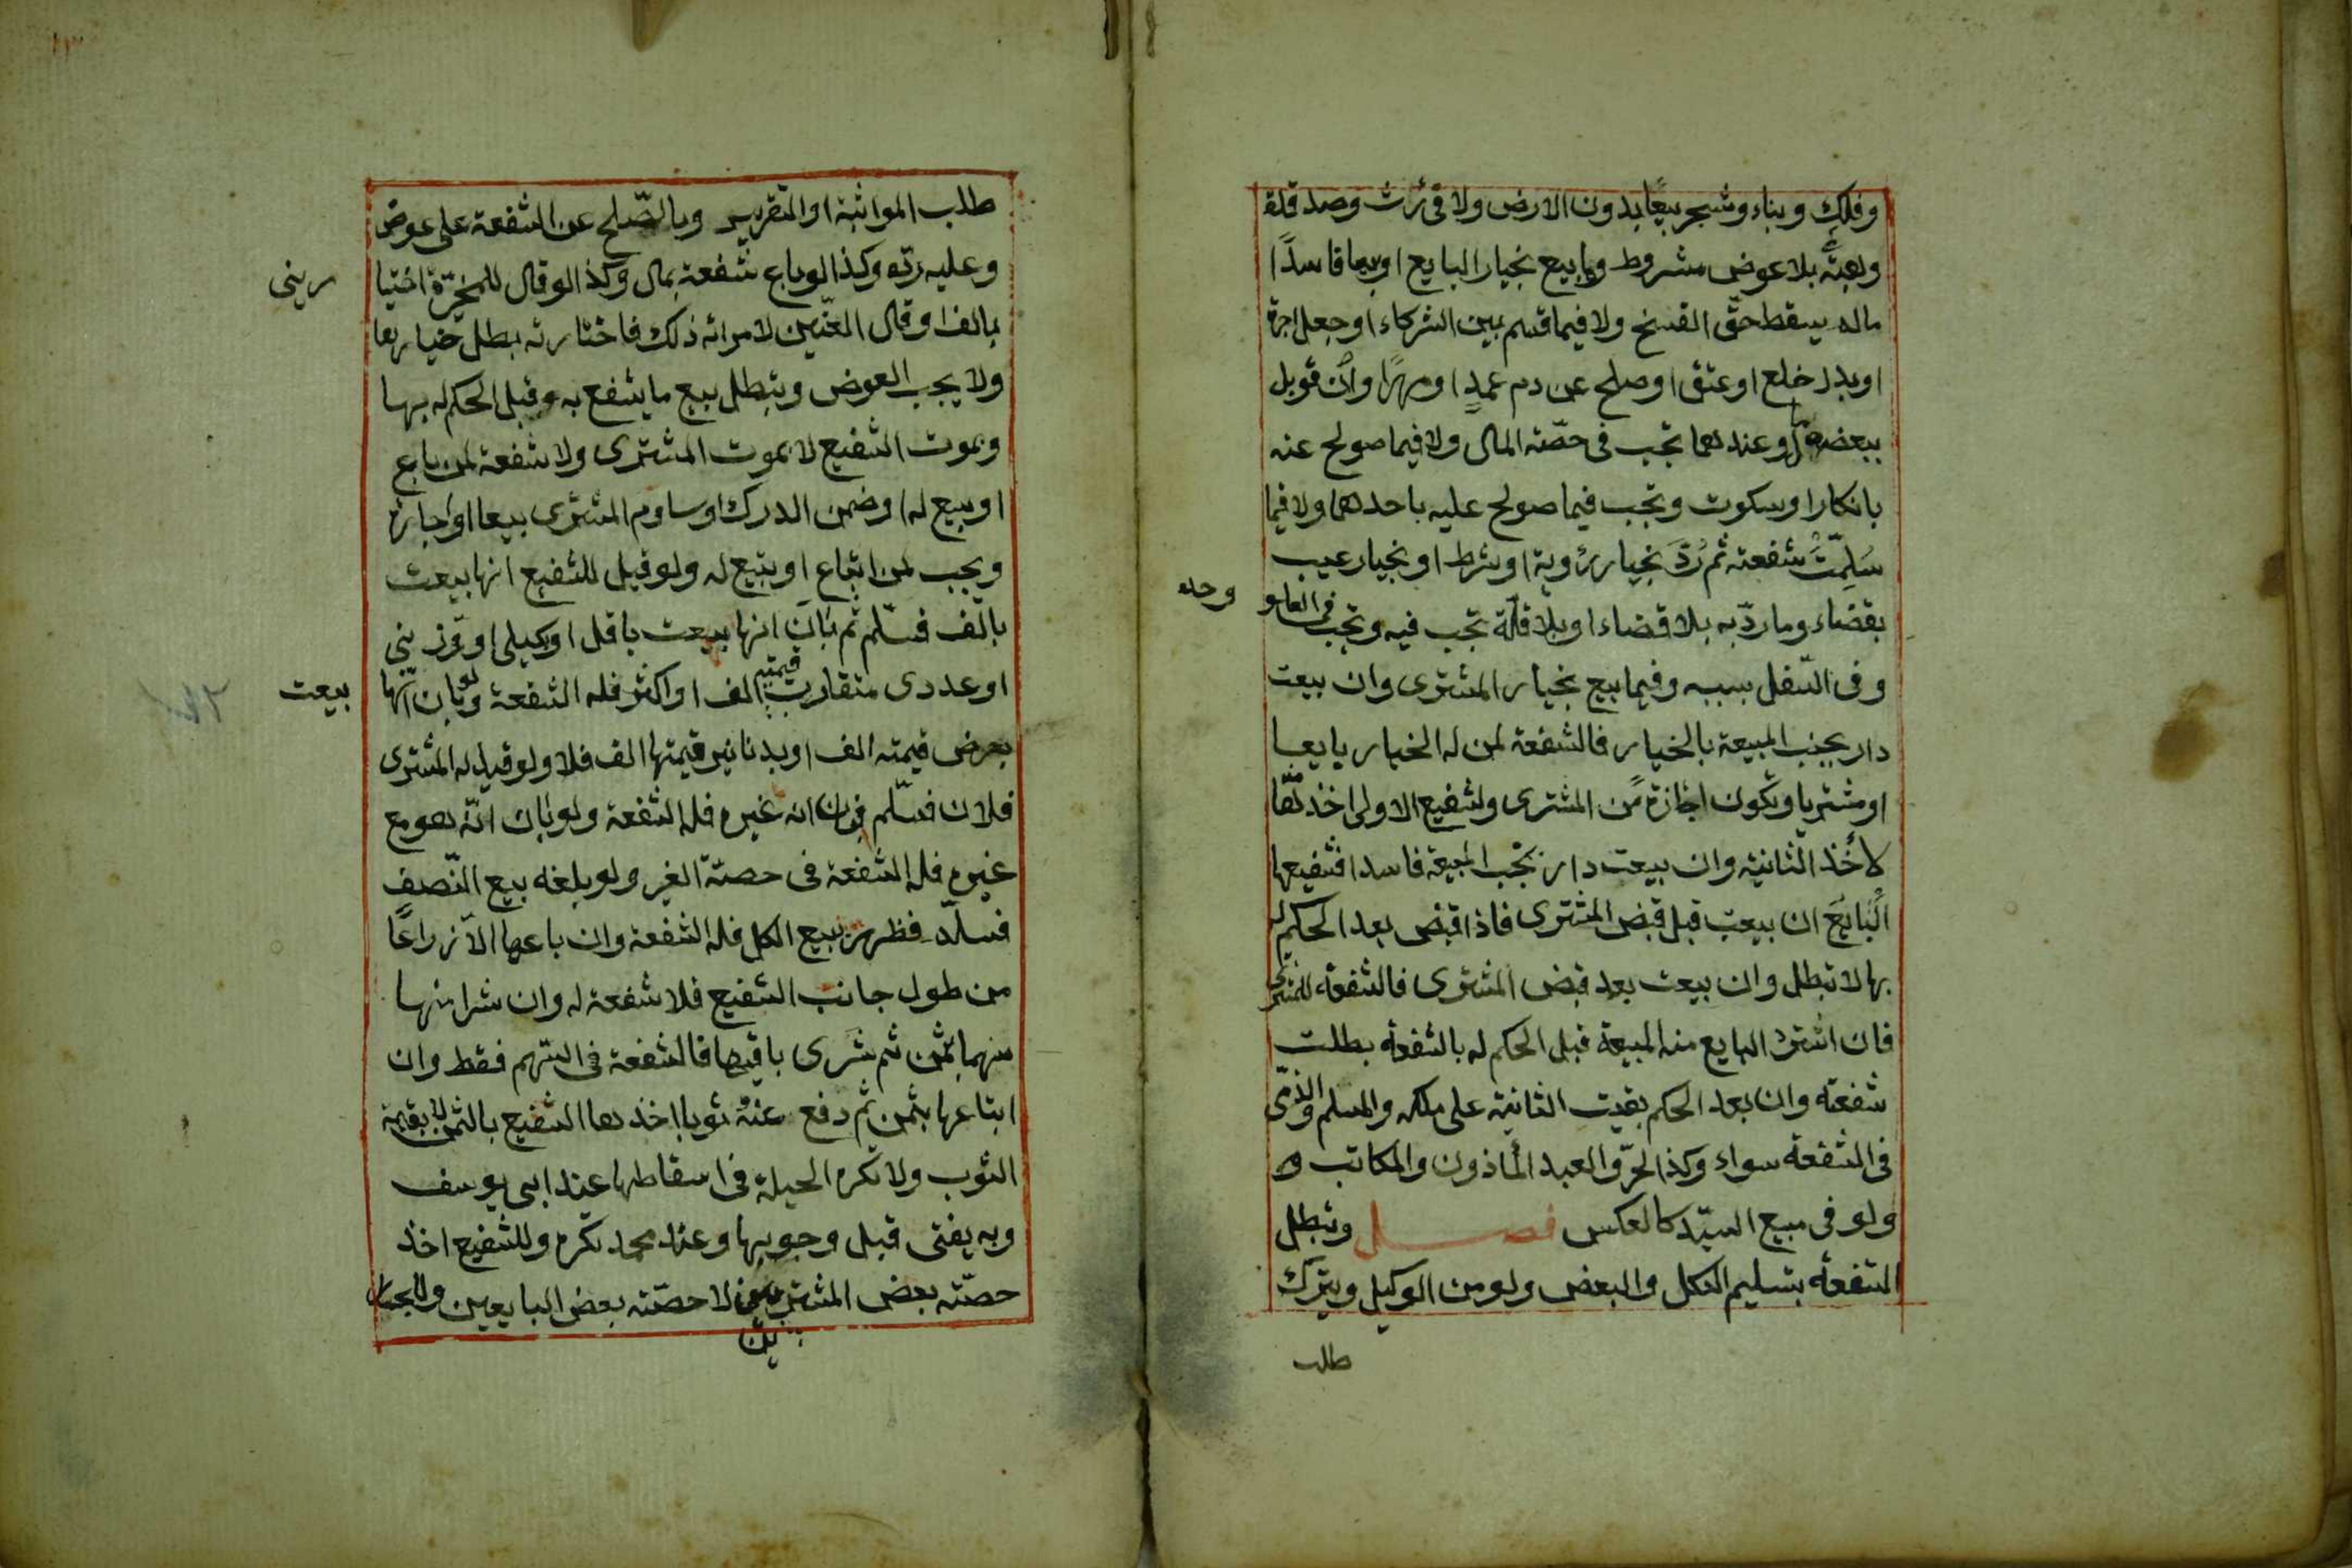 وفلك وبناء وشجر بيعا بدون الارض ولا فى ارث وصدقة
وهبة بلا عوض مشروط وما بيع بخيار البايع او بيعا فاسدًا
ماله يسقط حقّ الفسخ ولا فيما قسم بين الشركاء او جعل اجرة
او بدل خلع او عتق او صلح عن دم عمدٍ او مهرًا وان قوبل
ببعضه مال وعندهما تجب فى حصّته المال ولا فيما صولح عنه
بانكار او سكوت وتجب فيما صولح عليه باحدهما ولا فيما
سَلِمَّتْ شفعته ثم رُدَّ بخيار رؤية او شرط او بخيار عيب
بقضاء وما ردّ به بلا قضاء او بلا قالة تجب فيه وتجب فى العلو
وحده
وفى السّفل بسببه وفيما بيع بخيار المشترى وان بيعت
دار بجنب المبيعة بالخيار فالشفعة لمن له الخيار بايعا
او مشتريا وتكون اجازة من المشترى ولشفيع الاولى اخذها
لا أخذ الثانية وان بيعت دار بجنب المبيعة فاسدا فشفيعها
الْبَايَعَ ان بيعت قبل قبض المشترى فاذا قبض بعد الحكم له
بها لا تبطل وان بيعت بعد قبض المشترى فالشفعة للمشترى
فان اشترى البايع منه المبيعة قبل الحكم له بالشفعة بطلت
شفعته وان بعد الحكم بقيت الثانية على ملكه والمسلم والذمّى
فى الشفعة سواء وكذا الحرّ والعبد المأذون والمكاتب و
ولو فى مبيع السيّد كالعكس فصل وتبطل
الشفعة بتسليم الكل والبعض ولو من الوكيل وبترك
طلب
طلب المواثبة او التقرير وبالصّلح عن الشفعة على عوض
وعليه ردّه وكذا لو باع شفعة بمال وكذا لو قال للمخيّرة اختيا
رينى
بالف او قال العنّين لامراته ذلك فاختارته بطل خيارها
ولا يجب العوض وتبطل ببيع ما يشفع به قبل الحكم له بها
وبموت الشفيع لا بموت المشترى ولا شفعة لمن باع
او بيع له او ضمن الدرك او ساوم المشترى بيعا او اجارة
ويجب لمن ابتاع او ابتيع له ولو قيل للشفيع انها بيعت
بالف فسلّم ثم بان انها بيعت باقل او بكيلى او وزنى
او عددى متقارب قيمته الف او اكثر فله الشفعة ولو بان انّها
بيعت
بعرض قيمته الف او بدنانير قيمتها الف فلا ولو قيل له المشترى
فلان فسلّم فبان انه غيره فله الشفعة ولو بان انّه هو مع
غيره فله الشفعة فى حصّة الغير ولو بلغه بيع النّصف
فسلّم فظهر بيع الكل فله الشفعة وان باعها الا ذراعًا
من طول جانب الشفيع فلا شفعة له وان شرا منها
سهما بثمن ثم شرى باقيها فالشفعة فى السّهم فقط وان
ابتاعها بثمن ثم دفع عنه ثوبا اخذها الشفيع بالثمن لا بقيمة
الثوب ولا تكره الحيلة فى اسقاطها عند ابى يوسف
وبه يفتى قبل وجوبها وعند محمد تكره وللشفيع اخذ
حصّته بعض المشترين لا حصّته بعض البايعين وللجار
ين